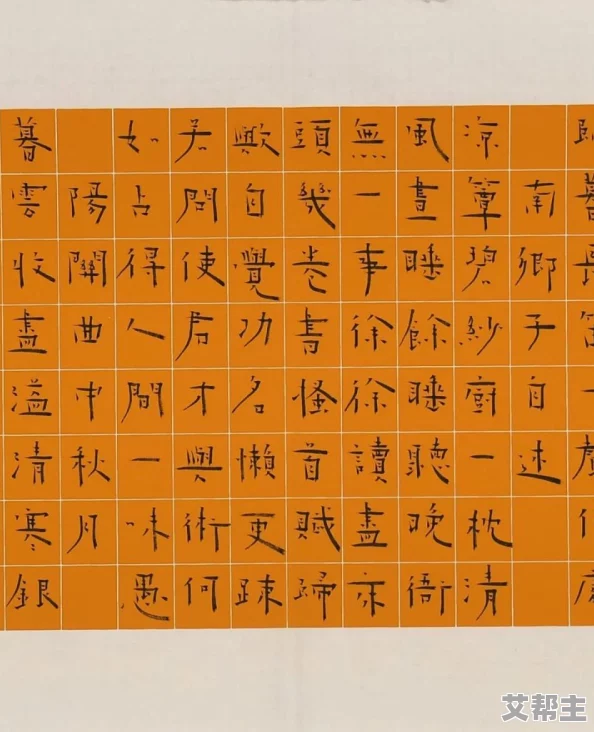 南鄉子自述
涼簟碧紗廚一枕清
風晝睡餘睡聽晚衙
無一事徐徐讀盡床
頭幾卷書搔首賦歸
歟自覺功名懶更疎
若問使君才與術何
如占得人間一味愚
陽關曲中秋月
暮雲收盡溢清寒銀
艾帮主